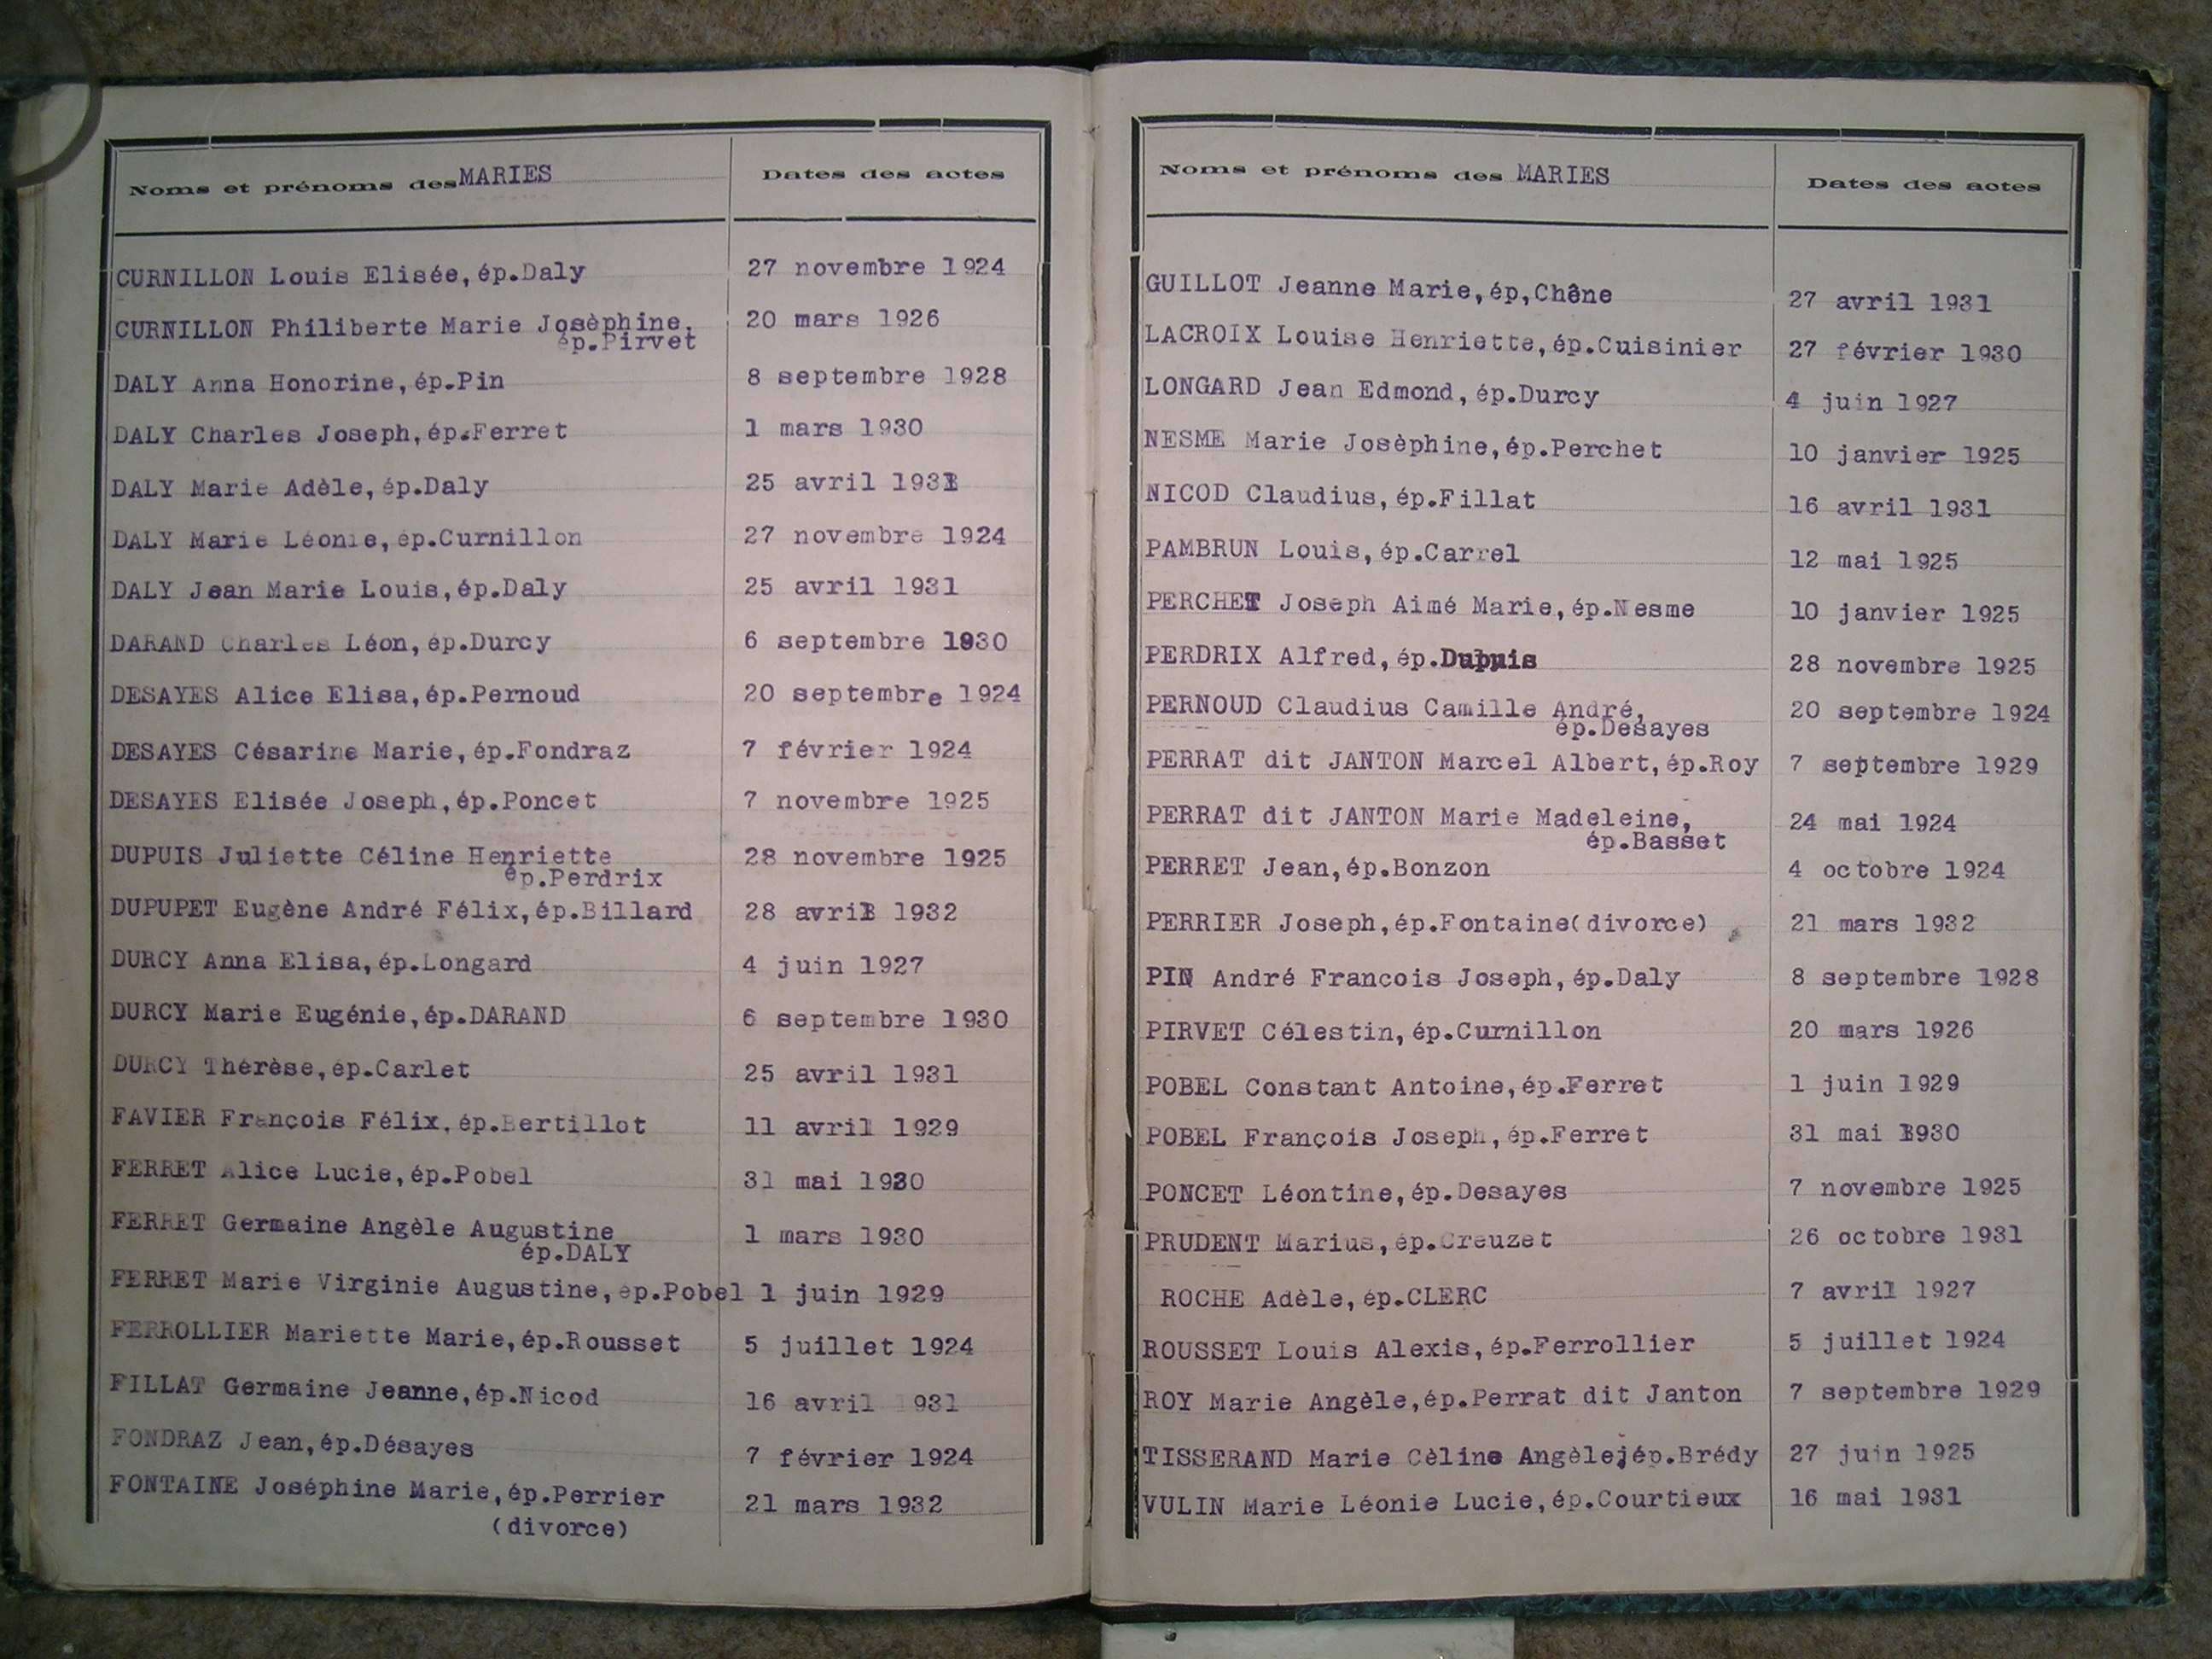 Noms et prénoms des MARIES Dates des actes
CURNILLON Louis Elisée,ép.Daly 27 novembre 1924
CURNILLON Philiberte Marie Josèphine, 20 mars 1926
ép.Pirvet
DALY Anna Honorine,ép.Pin 8 septembre 1928
DALY Charles Joseph,ép.Ferret 1 mars 1930
DALY Marie Adèle,ép.Daly 25 avril 1931
DALY Marie Léonie,ép.Curnillon 27 novembre 1924
DALY Jean Marie Louis,ép.Daly 25 avril 1931
DARAND Charles Léon,ép.Durcy 6 septembre 1930
DESAYES Alice Elisa,ép.Pernoud 20 septembre 1924
DESAYES Césarine Marie,ép.Fondraz 7 février 1924
DESAYES Elisée Joseph,ép.Poncet 7 novembre 1925
DUPUIS Juliette Céline Henriette 28 novembre 1925
ép.Perdrix
DUPUPET Eugène André Félix,ép.Billard 28 avril 1932
DURCY Anna Elisa,ép.Longard 4 juin 1927
DURCY Marie Eugénie,ép.DARAND 6 septembre 1930
DURCY Thérèse,ép.Carlet 25 avril 1931
FAVIER François Félix,ép.Bertillot 11 avril 1929
FERRET Alice Lucie,ép.Pobel 31 mai 1930
FERRET Germaine Angèle Augustine 1 mars 1930
ép.DALY
FERRET Marie Virginie Augustine,ép.Pobel 1 juin 1929
FERROLLIER Mariette Marie,ép.Rousset 5 juillet 1924
FILLAT Germaine Jeanne,ép.Nicod 16 avril 1931
FONDRAZ Jean,ép.Désayes 7 février 1924
FONTAINE Joséphine Marie,ép.Perrier 21 mars 1932
(divorce)
Noms et prénoms des MARIES Dates des actes
GUILLOT Jeanne Marie,ép,Chêne 27 avril 1931
LACROIX Louise Henriette,ép.Cuisinier 27 février 1930
LONGARD Jean Edmond,ép.Durcy 4 juin 1927
NESME Marie Josèphine,ép.Perchet 10 janvier 1925
NICOD Claudius,ép.Fillat 16 avril 1931
PAMBRUN Louis,ép.Carrel 12 mai 1925
PERCHET Joseph Aimé Marie,ép.Nesme 10 janvier 1925
PERDRIX Alfred,ép.Dupuis 28 novembre 1925
PERNOUD Claudius Camille André, 20 septembre 1924
ép.Desayes
PERRAT dit JANTON Marcel Albert,ép.Roy 7 septembre 1929
PERRAT dit JANTON Marie Madeleine, 24 mai 1924
ép.Basset
PERRET Jean,ép.Bonzon 4 octobre 1924
PERRIER Joseph,ép.Fontaine(divorce) 21 mars 1932
PIN André Francois Joseph,ép.Daly 8 septembre 1928
PIRVET Célestin,ép.Curnillon 20 mars 1926
POBEL Constant Antoine,ép.Ferret 1 juin 1929
POBEL François Joseph,ép.Ferret 31 mai 1930
PONCET Léontine,ép.Desayes 7 novembre 1925
PRUDENT Marius,ép.Creuzet 26 octobre 1931
ROCHE Adèle,ép.CLERC 7 avril 1927
ROUSSET Louis Alexis,ép.Ferrollier 5 juillet 1924
ROY Marie Angèle,ép.Perrat dit Janton 7 septembre 1929
TISSERAND Marie Cèline Angèle,ép.Brédy 27 juin 1925
VULIN Marie Léonie Lucie,ép.Courtieux 16 mai 1931